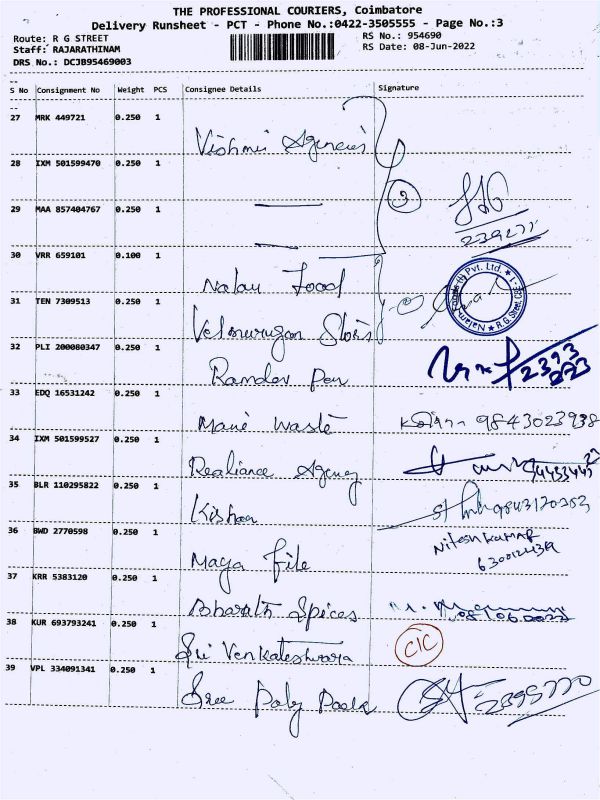 THE PROFESSIONAL COURIERS, Coimbatore
Delivery Runsheet - PCT - Phone No.:0422-3505555 - Page No.:3
Route: R G STREET
RS No.: 954690
Staff: RAJARATHINAM
RS Date: 08-Jun-2022
DRS No.: DCJB95469003
S No Consignment No Weight PCS Consignee Details Signature
27 MRK 449721 0.250 1 Vishnu Agencies
28 IXM 501599470 0.250 1
29 MAA 857404767 0.250 1 3
30 VRR 659101 0.100 1 Nalan Food
31 TEN 7309513 0.250 1 Velmurugan Stores
32 PLI 200080347 0.250 1 Ramdev Pen
33 EDQ 16531242 0.250 1 Mane Waste 9843023938
34 IXM 501599527 0.250 1 Realiance Agency
35 BLR 110295822 0.250 1 Kishan
36 BWD 2770598 0.250 1 Maga File Nitesh Kumar
37 KRR 5383120 0.250 1 Bharath Spices
38 KUR 693793241 0.250 1 Sri Venkateshwara CIC
39 VPL 334091341 0.250 1 Sree Poly Pack